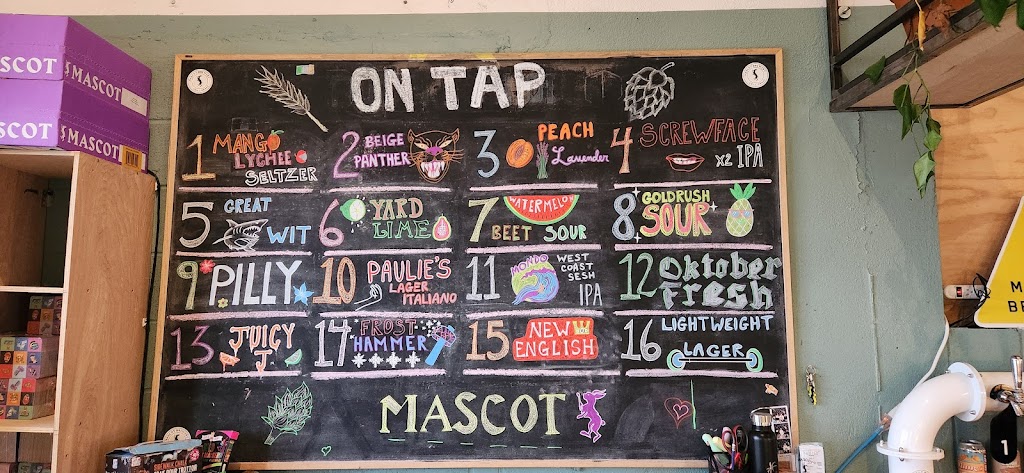 ON TAP
1 MANGO
LYCHEE
SELTZER
2 BEIGE
PANTHER
3 PEACH
Lavender
4 SCREWFACE
x2 IPA
5 GREAT
WIT
6 YARD
LIME
7 WATERMELON
BEET SOUR
8 GOLDRUSH
SOUR
9 PILLY
10 PAULIE'S
LAGER
ITALIANO
11 MONDO
WEST
COAST
SESH
IPA
12 Oktober
fresh
13 JUICY
J
14 FROST
HAMMER
15 NEW
ENGLISH
16 LIGHTWEIGHT
LAGER
MASCOT
SCOT
MASCOT
SCOT
MASCOT
1